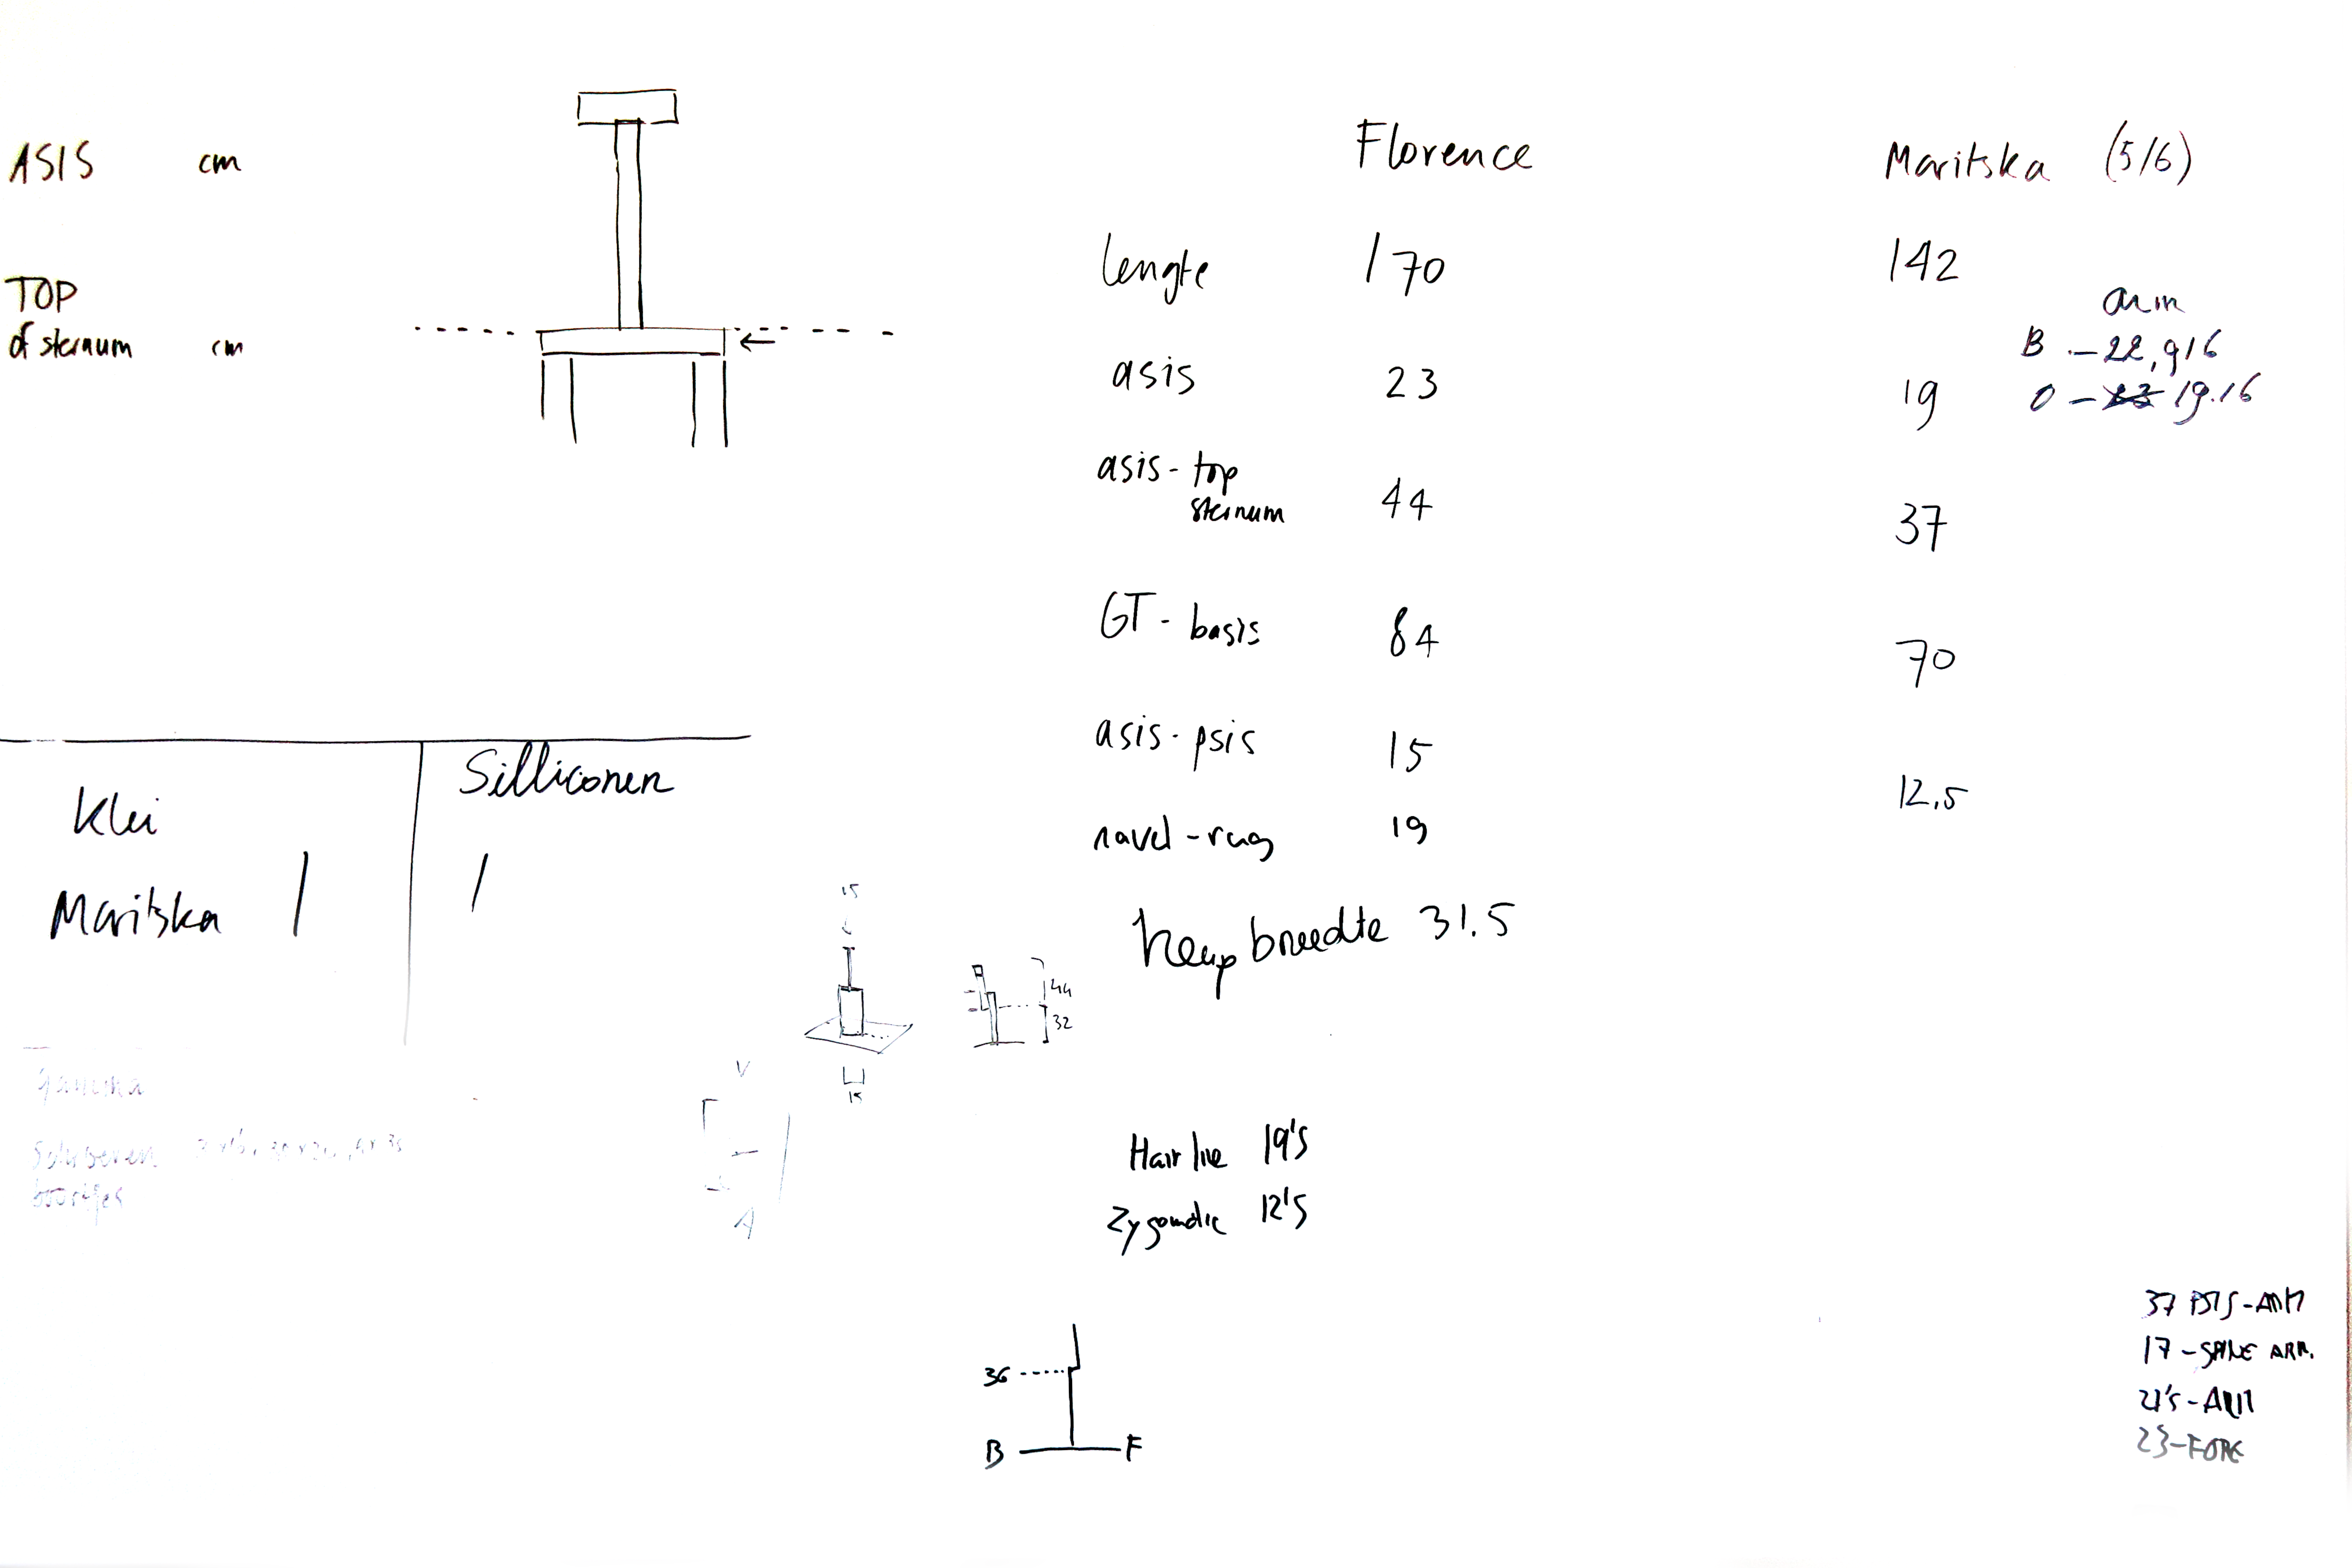 ASIS cm
TOP
of sternum cm
Florence Maritska (5/6)
lengte 170 142
arm
B - 22,916
asis 23 19 O - 19.16
asis - top
sternum 44 37
GT - basis 84 70
asis - psis 15 12,5
navel - rug 19
Heup breedte 31.5
Klei Silliconen
Maritska | |
15
44
32
V
15
A
Gamma
Hair line 19'5
Zygomatic 12'5
36
B F
37 PSIS-ARM
17 - SPINE ARM.
21's - ARM
23 - FORE